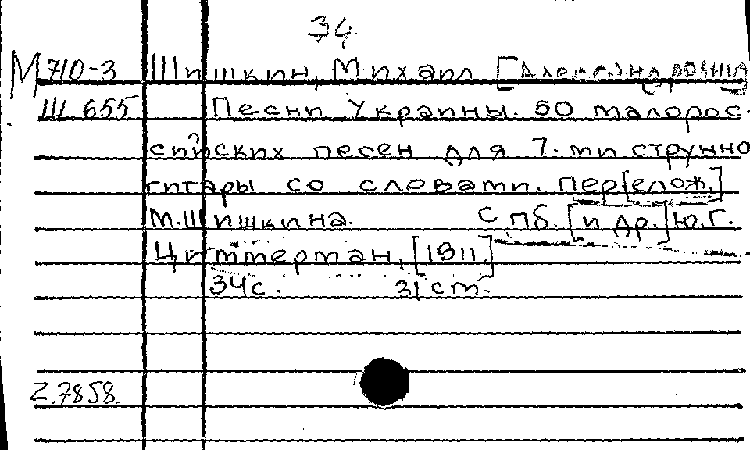 34
М 710-3 Шишкин, Михаил [Александрович]
Ш 655 Песни Украины. 50 малорос-
сийских песен для 7-ми струнно
гитары со словами. Пер[елож.]
М. Шишкина. СПб. [и др.] Ю.Г.
Циммерман, [1911.]
34 с. 31 см.
2.7858.